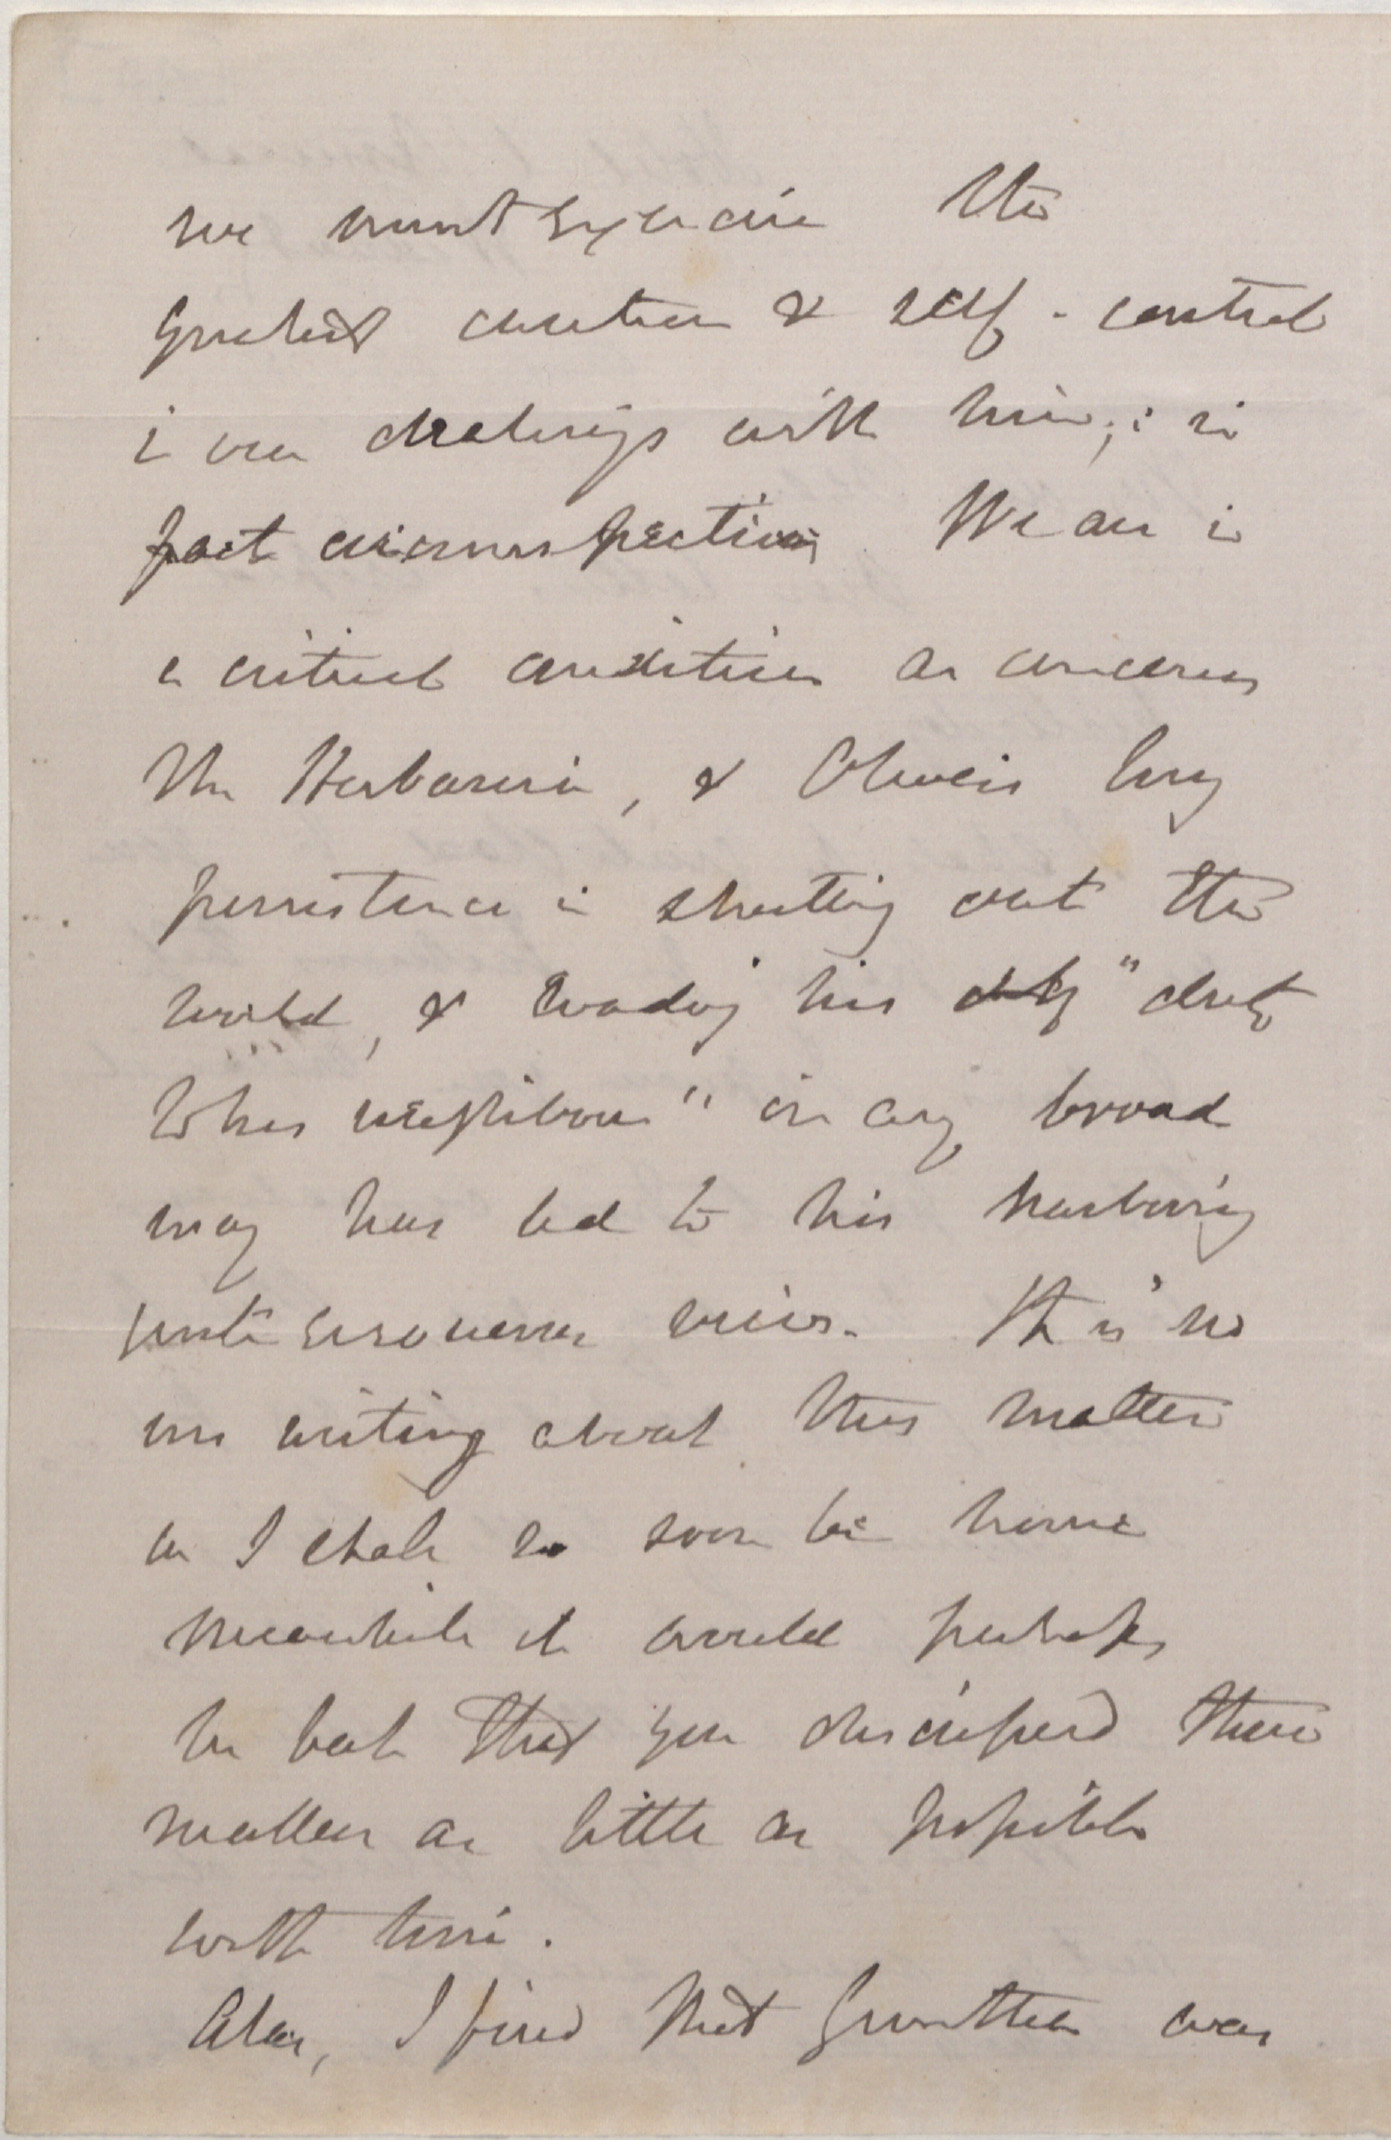 we must exercise the
greatest caution & self-control
in our dealings with him; in
fact circumspection. We are in
a critical condition as concerns
the Herbarium, & Oliver's long
persistence in shutting out the
world, & evading his duty "duty
to his neighbour" in any broad
way has led to his harbouring
quite erroneous views. It is no
use writing about this matter
as I shall so soon be home
meanwhile it would perhaps
be best that you discussed these
matters as little as possible
with him.
Alas, I find that was